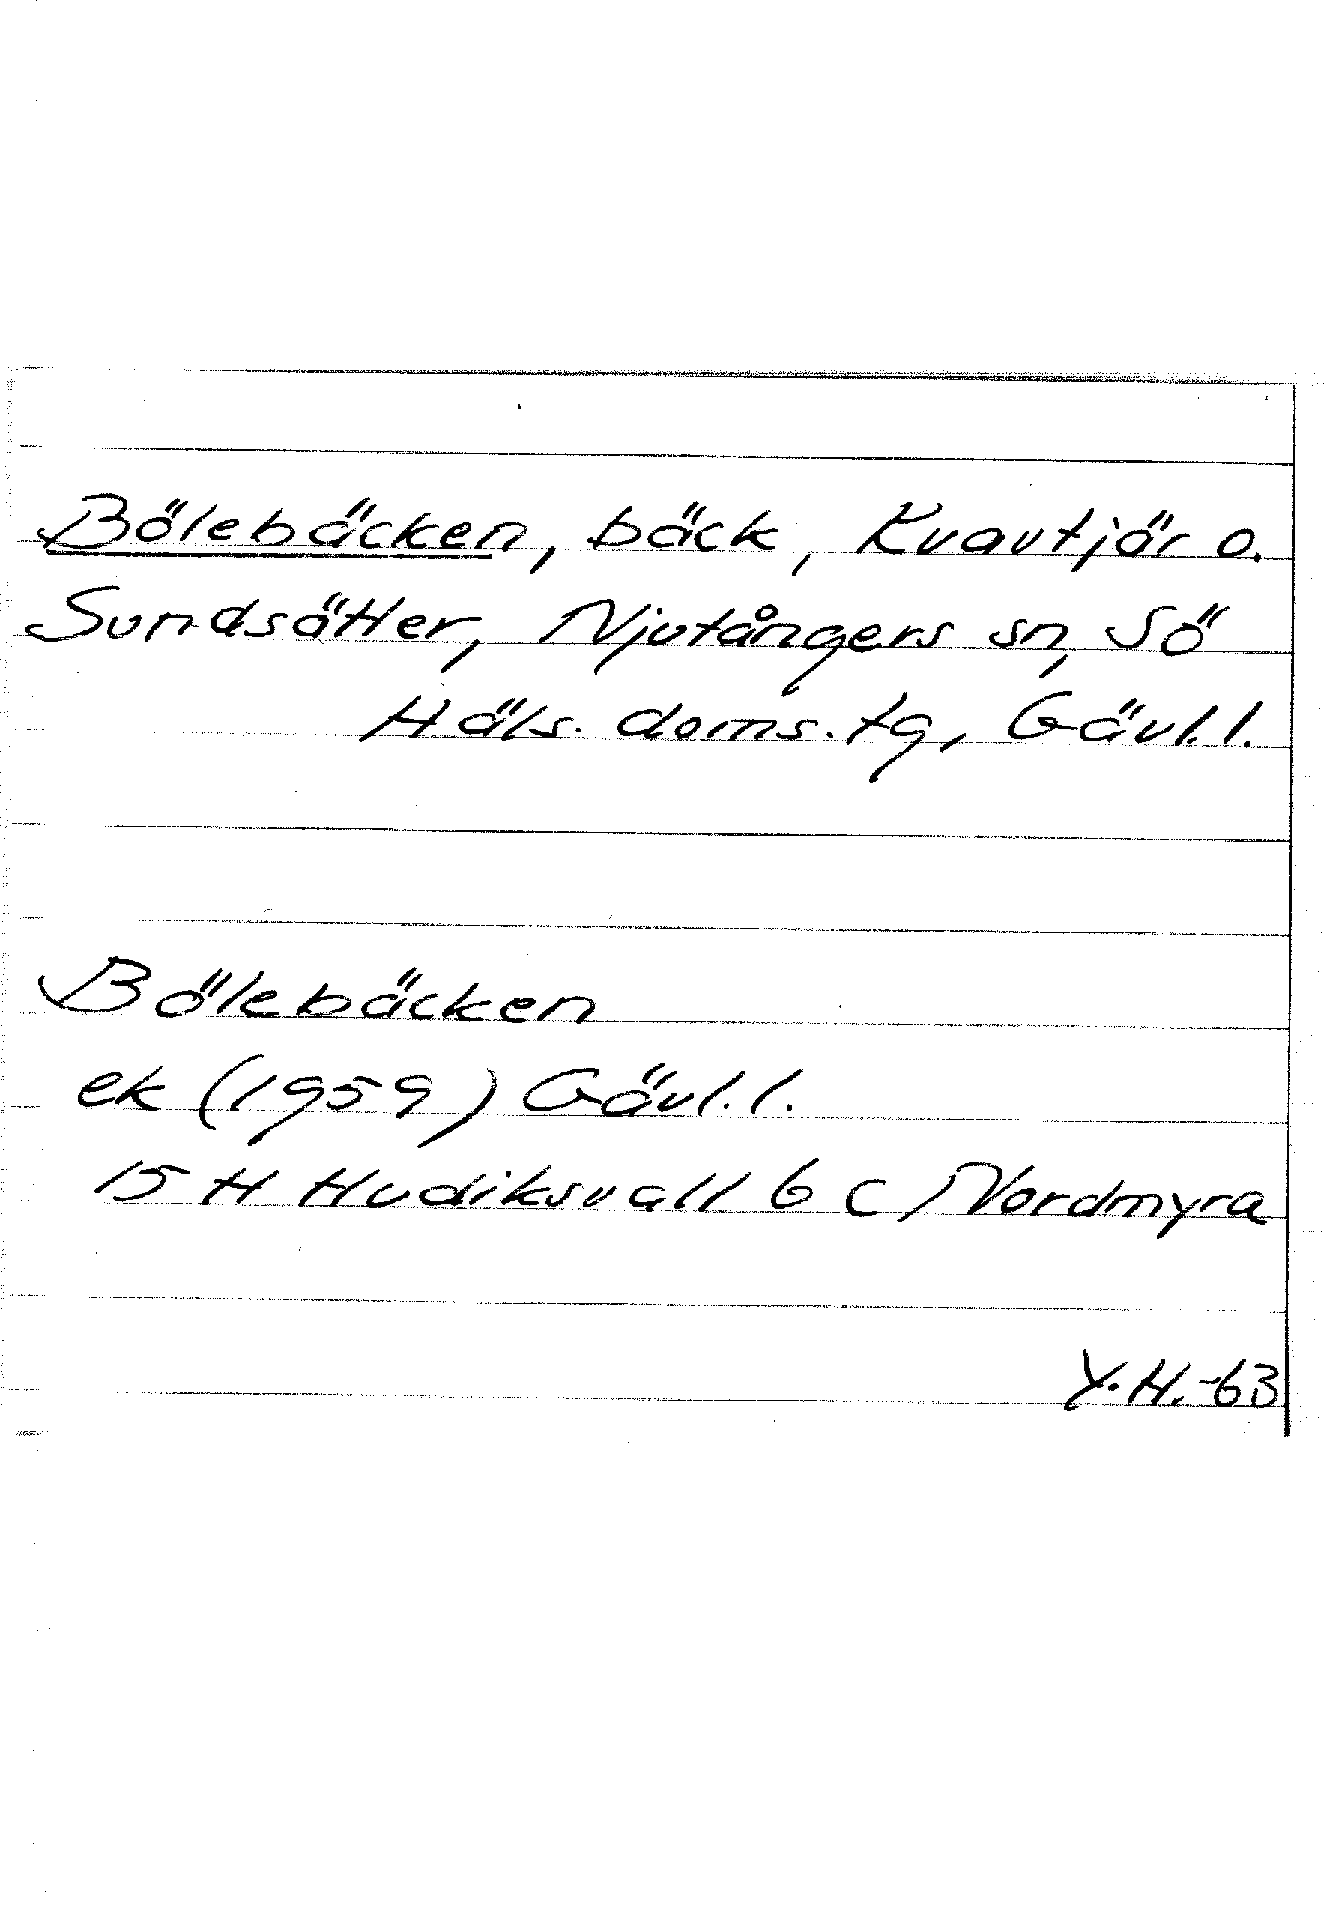 Bölebäcken, bäck, Kvavtjär o.
Sundsätter, Njutångers sn, Sö
Häls. doms.tg, Gävl.l.
Bölebäcken
ek (1959) Gävl.l.
15 H Hudiksvall 6 c Nordmyra
Y.H.-63